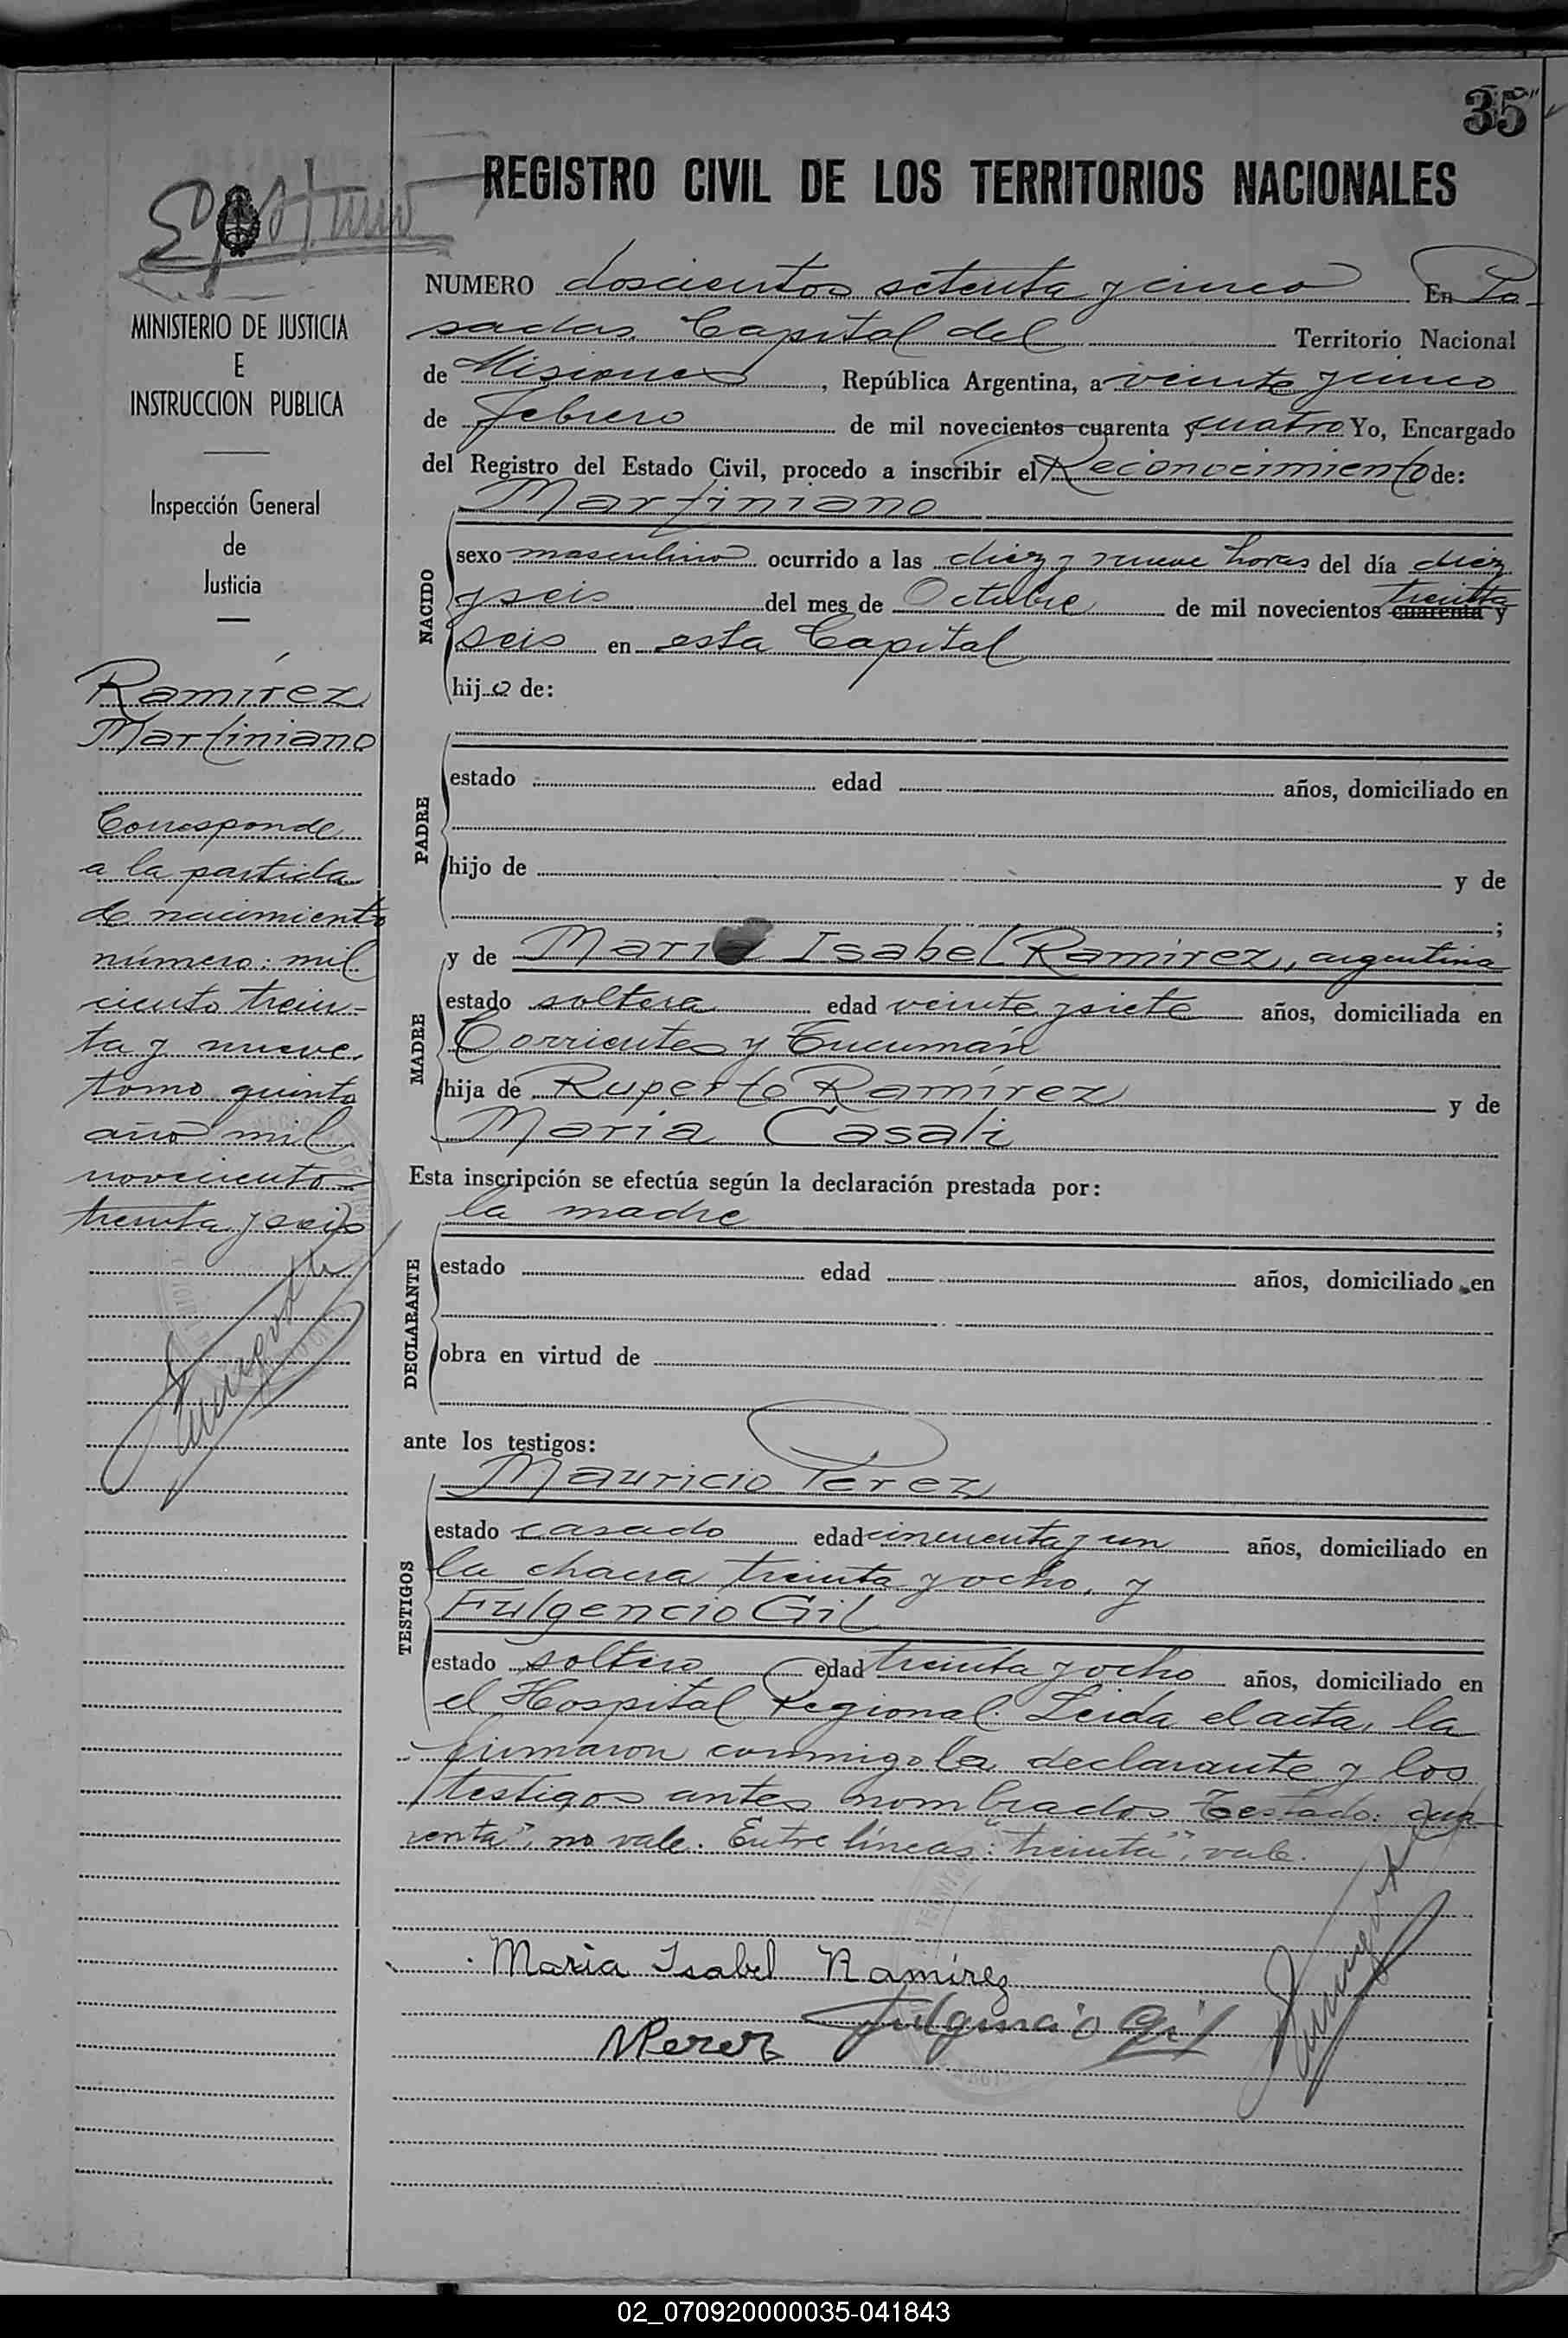 35
REGISTRO CIVIL DE LOS TERRITORIOS NACIONALES
MINISTERIO DE JUSTICIA
E
INSTRUCCION PUBLICA
Inspección General
de
Justicia
Ramírez
Martiniano
Corresponde
a la partida
de nacimiento
número: mil
ciento trein-
ta y nueve.
tomo quinto
año mil
novecientos
treinta y seis
NUMERO doscientos setenta y cinco En Po-
sadas Capital del Territorio Nacional
de Misiones, República Argentina, a veinte y cinco
de febrero de mil novecientos cuarenta y cuatro Yo, Encargado
del Registro del Estado Civil, procedo a inscribir el Reconocimiento de:
Martiniano
NACIDO
sexo masculino ocurrido a las diez y nueve horas del día diez
treinta
y seis del mes de Octubre de mil novecientos cuarenta y
seis en esta Capital
hijo de:
PADRE
estado edad años, domiciliado en
hijo de y de
;
y de Maria Isabel Ramírez, argentina
MADRE
estado soltera edad veinte y siete años, domiciliada en
Corrientes y Tucumán
hija de Ruperto Ramírez y de
Maria Casali
Esta inscripción se efectúa según la declaración prestada por:
la madre
DECLARANTE
estado edad años, domiciliado en
obra en virtud de
ante los testigos:
Mauricio Perez
TESTIGOS
estado casado edad cincuenta y un años, domiciliado en
la chacra treinta y ocho, y
Fulgencio Gil
estado soltero edad treinta y ocho años, domiciliado en
el Hospital Regional. Leida el acta, la
firmaron conmigo la declarante y los
testigos antes nombrados Testado: "cua
renta", no vale. Entre líneas: "treinta", vale.
Maria Isabel Ramírez
Fulgencio Gil
MPerez
02_070920000035-041843